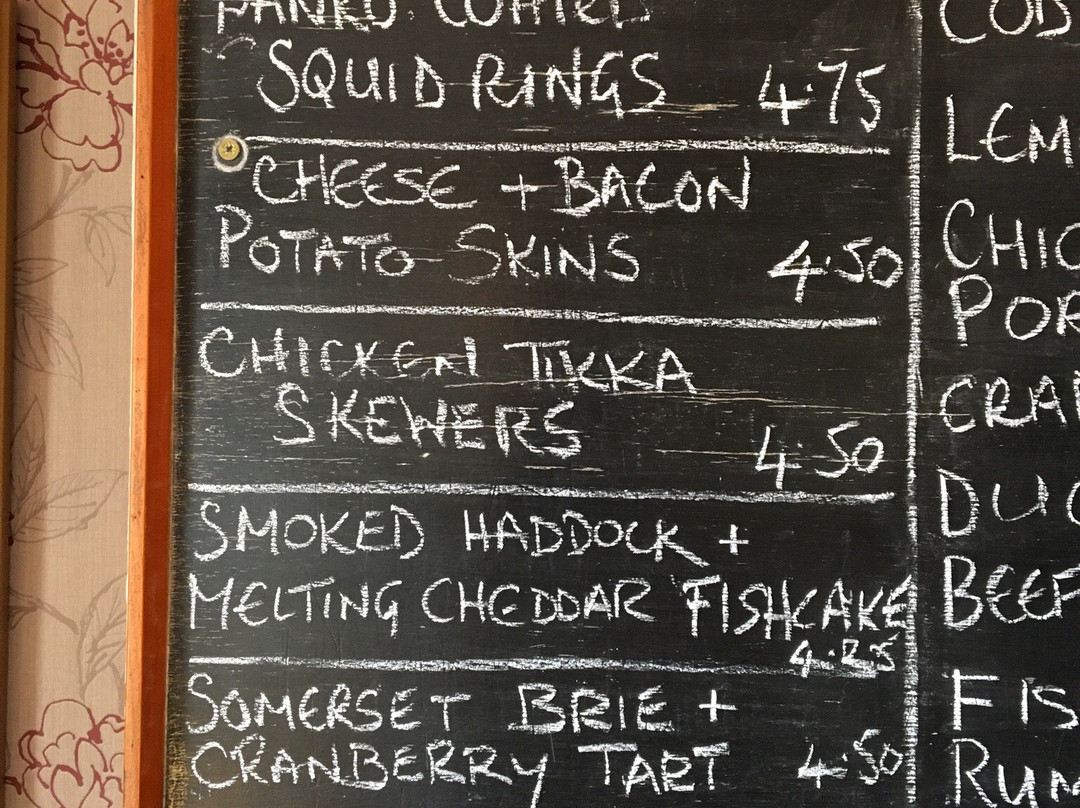 PANKO COATED
SQUID RINGS 4.75
CHEESE + BACON
POTATO SKINS 4.50
CHICKEN TIKKA
SKEWERS
4.50
SMOKED HADDOCK +
MELTING CHEDDAR FISHCAKE
4.25
SOMERSET BRIE +
CRANBERRY TART 4.50
COD
LEM
CHIC
POR
CRAN
DUC
BEEF
FIS
RUM